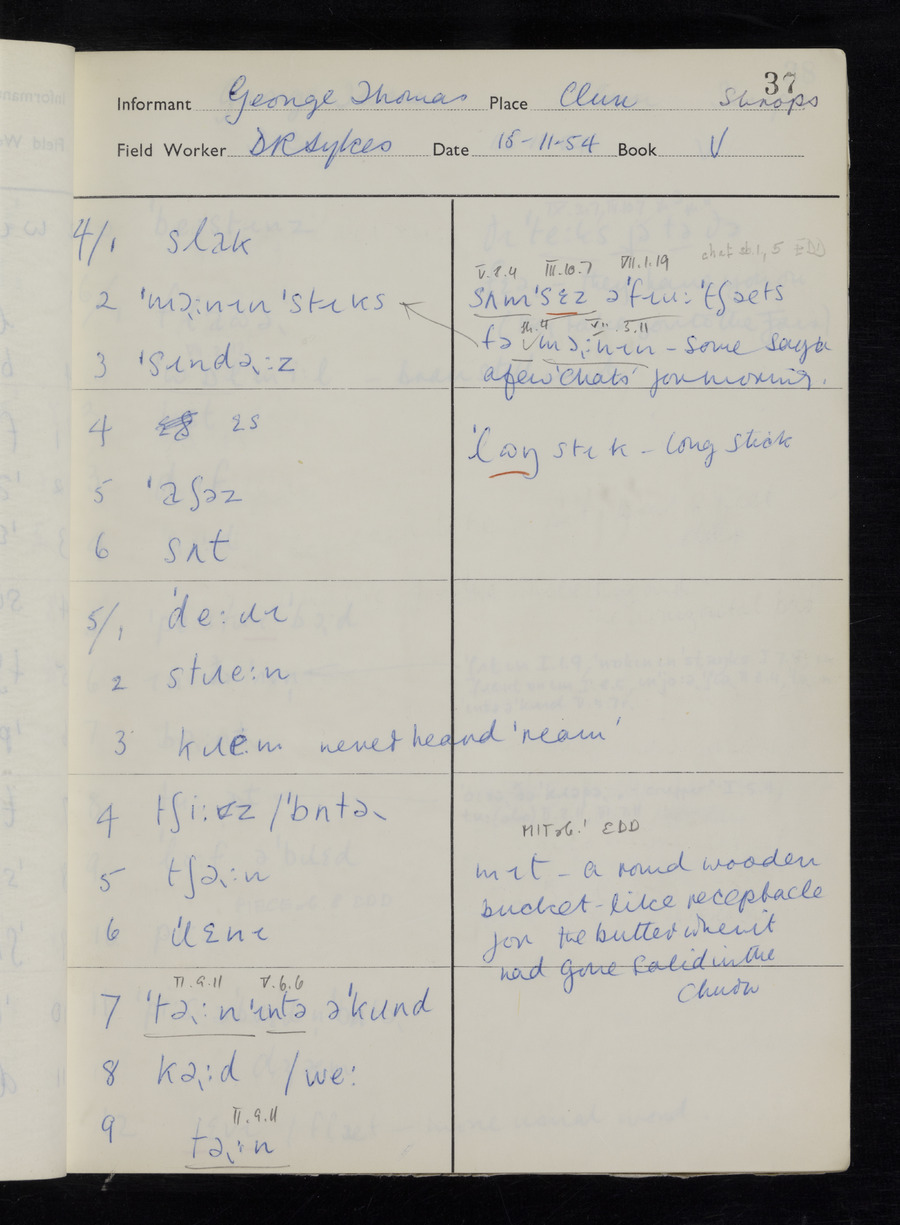 37
Informant George Thomas Place Clun Shrops
Field Worker DR Sykes Date 18-11-54 Book V
4/1 slak
2 ˈmə˞ːnɪn ˈstɪks
3 ˈsɪndə˞ːz
4 ɛs
5 ˈaʃəz
6 sʌt
5/1 ˈdeːɹɪ
2 stɹeːn
3 kɹem never heard 'ream'
4 tʃiːz / ˈbʌtə˞
5 tʃə˞ːn
6 ˈɹɛnɪ
II.9.11 V.6.6
7 ˈtə˞ːn ˈɪntə əˈkɹud
8 kə˞ːd / weː
II.9.11
9 tə˞ːn
chat sb.1, 5 EDD
V.8.4 III.10.7 VII.1.19
sʌmˈsɛz əˈfɪuːˈtʃæts
VII.3.11
fə mə˞ːnɪn - some say
a few 'chats' for mornin.
ˈlɒŋ stɪk - long stick
MIT sb.1 EDD
mɪt - a round wooden
bucket-like receptacle
for the butter when it
had gone solid in the
churn